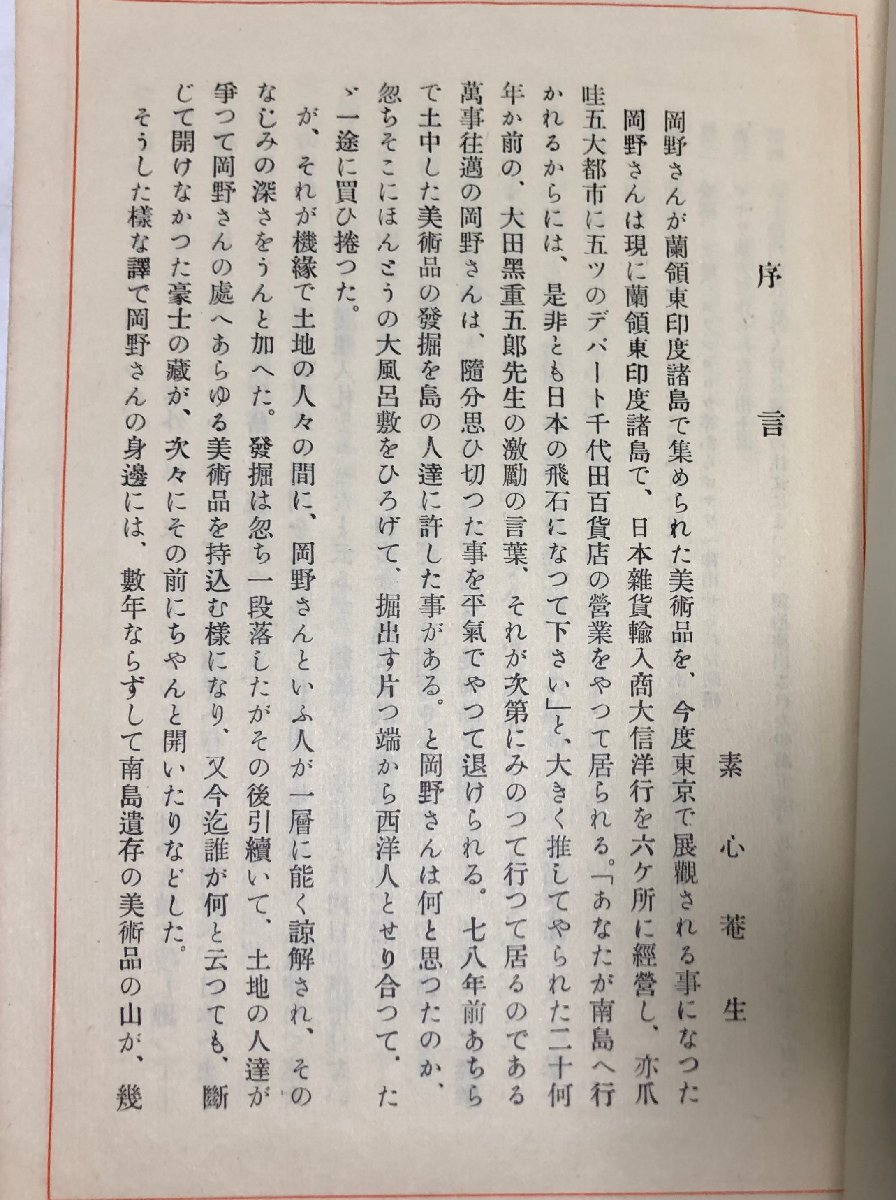 序言
素心菴生
岡野さんが蘭領東印度諸島で集められた美術品を、今度東京で展觀される事になつた
岡野さんは現に蘭領東印度諸島で、日本雜貨輸入商大信洋行を六ケ所に經營し、亦爪
哇五大都市に五ツのデパート千代田百貨店の營業をやつて居られる。「あなたが南島へ行
かれるからには、是非とも日本の飛石になつて下さい」と、大きく推してやられた二十何
年か前の、大田黑重五郎先生の激勵の言葉、それが次第にみのつて行つて居るのである
萬事往邁の岡野さんは、隨分思ひ切つた事を平氣でやつて退けられる。七八年前あちら
で土中した美術品の發掘を島の人達に許した事がある。と岡野さんは何と思つたのか、
忽ちそこにほんとうの大風呂敷をひろげて、掘出す片つ端から西洋人とせり合つて、た
ゞ一途に買ひ捲つた。
が、それが機緣で土地の人々の間に、岡野さんといふ人が一層に能く諒解され、その
なじみの深さをうんと加へた。發掘は忽ち一段落したがその後引續いて、土地の人達が
爭つて岡野さんの處へあらゆる美術品を持込む樣になり、又今迄誰が何と云つても、斷
じて開けなかつた豪士の藏が、次々にその前にちやんと開いたりなどした。
そうした樣な譯で岡野さんの身邊には、數年ならずして南島遺存の美術品の山が、幾